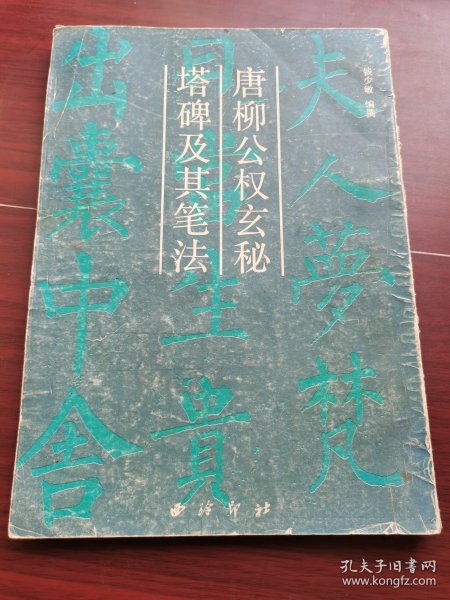 钱少敏 编撰
唐柳公权玄秘
塔碑及其笔法
夫人夢梵
曰生貴
出囊中舍
西泠印社
孔夫子旧书网
www.kongfz.com